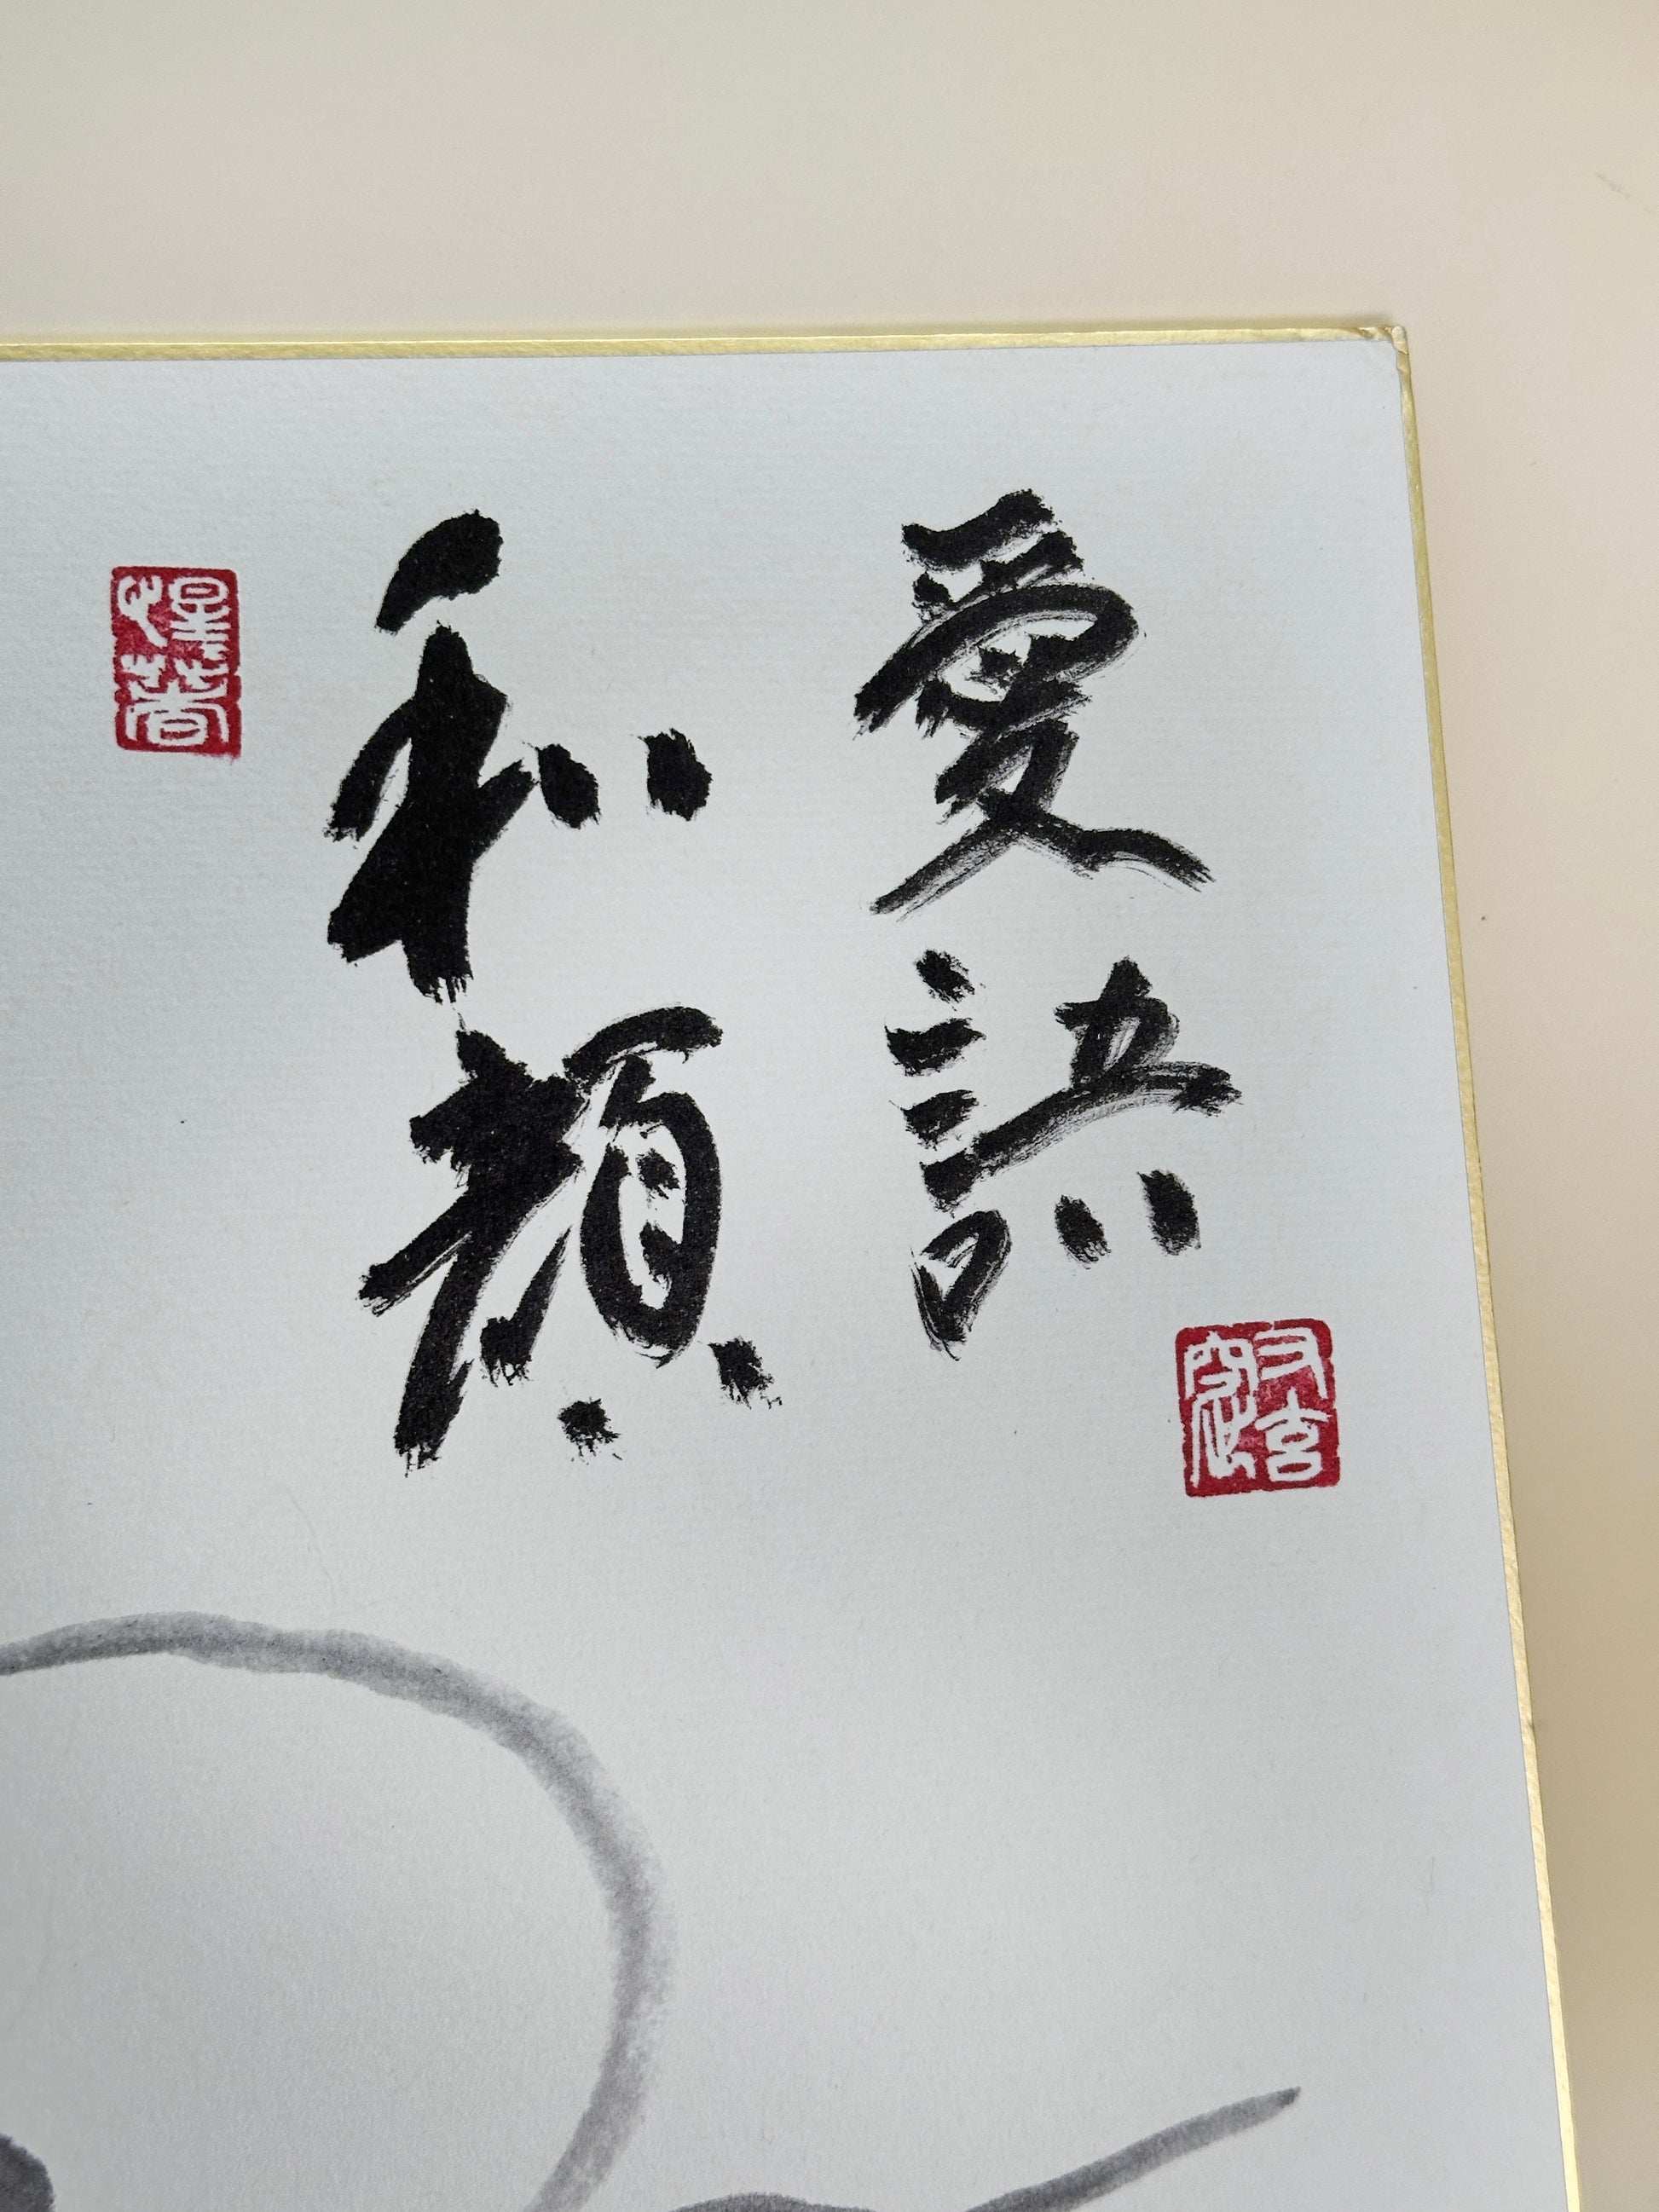 愛語
和顔